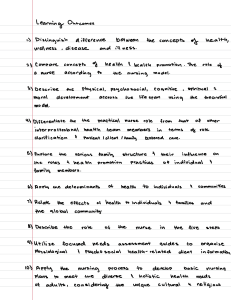 Learning Outcomes
1.) Distinguish difference between the concepts of health,
wellness, disease and illness.
2.) Compare concepts of health & health promotion. The role of
a nurse according to the nursing model.
3.) Describe the Physical, psychosocial, cognitive, spiritual &
moral development across the lifespan using the
model.
4.) Differentiate the the practical nurse role from that of other
interprofessional health team members in terms of role
clarification & patient/client/family centered care.
5.) Explore the various family structure & their influence on
the roles & health promotion practices of individual &
family members.
6.) Apply the determinants of health to individuals & communities
7.) Relate the effects of health to individuals & families and
the global community
8.) Describe the role of the nurse in the five steps
9.) Utilize focused needs assessment guides to organize
Physiological & Psychosocial health-related client information.
10.) Apply the nursing process to develop basic nursing
Plans to meet the diverse & holistic health needs
of adults, considering the unique cultural & religious